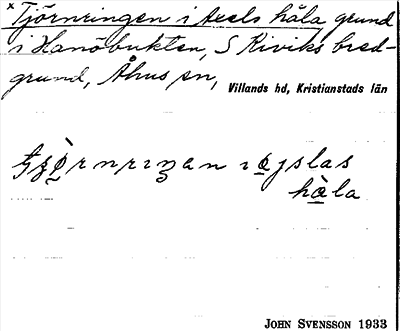 × Tjörnringen i Axels håla grund
i Hanöbukten, S Kiviks bred-
grund, Åhus sn, Villands hd, Kristianstads län
håla
JOHN SVENSSON 1933